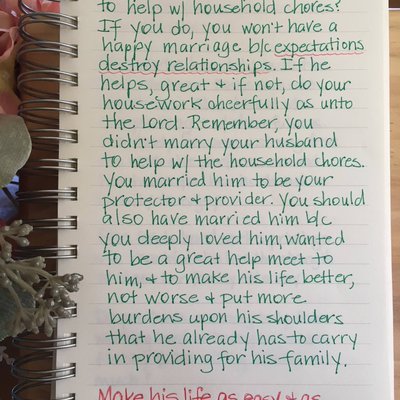 to help w/ household chores?
If you do, you won't have a
happy marriage b/c expectations
destroy relationships. If he
helps, great & if not, do your
housework cheerfully as unto
the Lord. Remember, you
didn't marry your husband
to help w/ the household chores.
You married him to be your
protector & provider. You should
also have married him b/c
you deeply loved him, wanted
to be a great help meet to
him, & to make his life better,
not worse & put more
burdens upon his shoulders
that he already has to carry
in providing for his family.
Make his life as easy & as